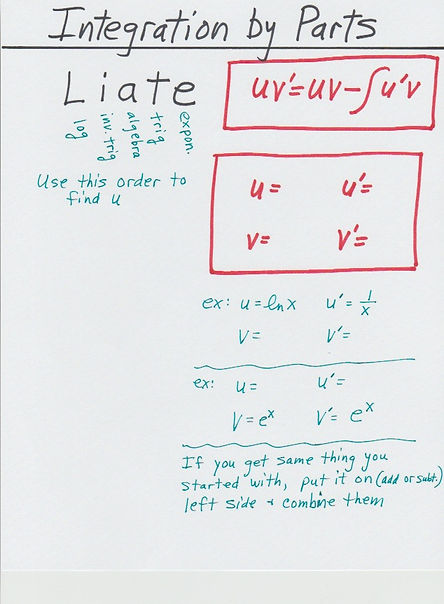 Integration by Parts
Liate
log
inv. trig
algebra
trig
expon.
Use this order to
find u
uv'=uv-∫u'v
u= u'=
v= v'=
ex: u=lnx u'=1/x
v= v'=
ex: u= u'=
v=eˣ v'=eˣ
If you get same thing you
started with, put it on (add or subt.)
left side & combine them